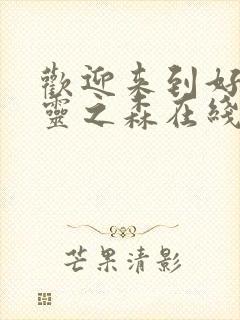 歡迎来到好
靈之森在綫
芒果清影